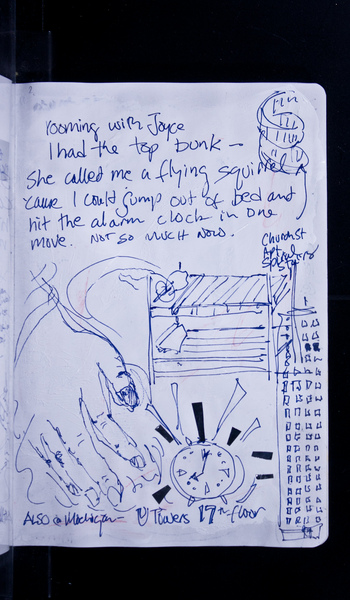 rooming with Joyce
I had the top bunk –
She called me a flying squirrel
'cause I could jump out of bed and
hit the alarm clock in one
move. NOT SO MUCH NOW.
Church St
Art
ALSO @ Michigan – U Towers 17th floor